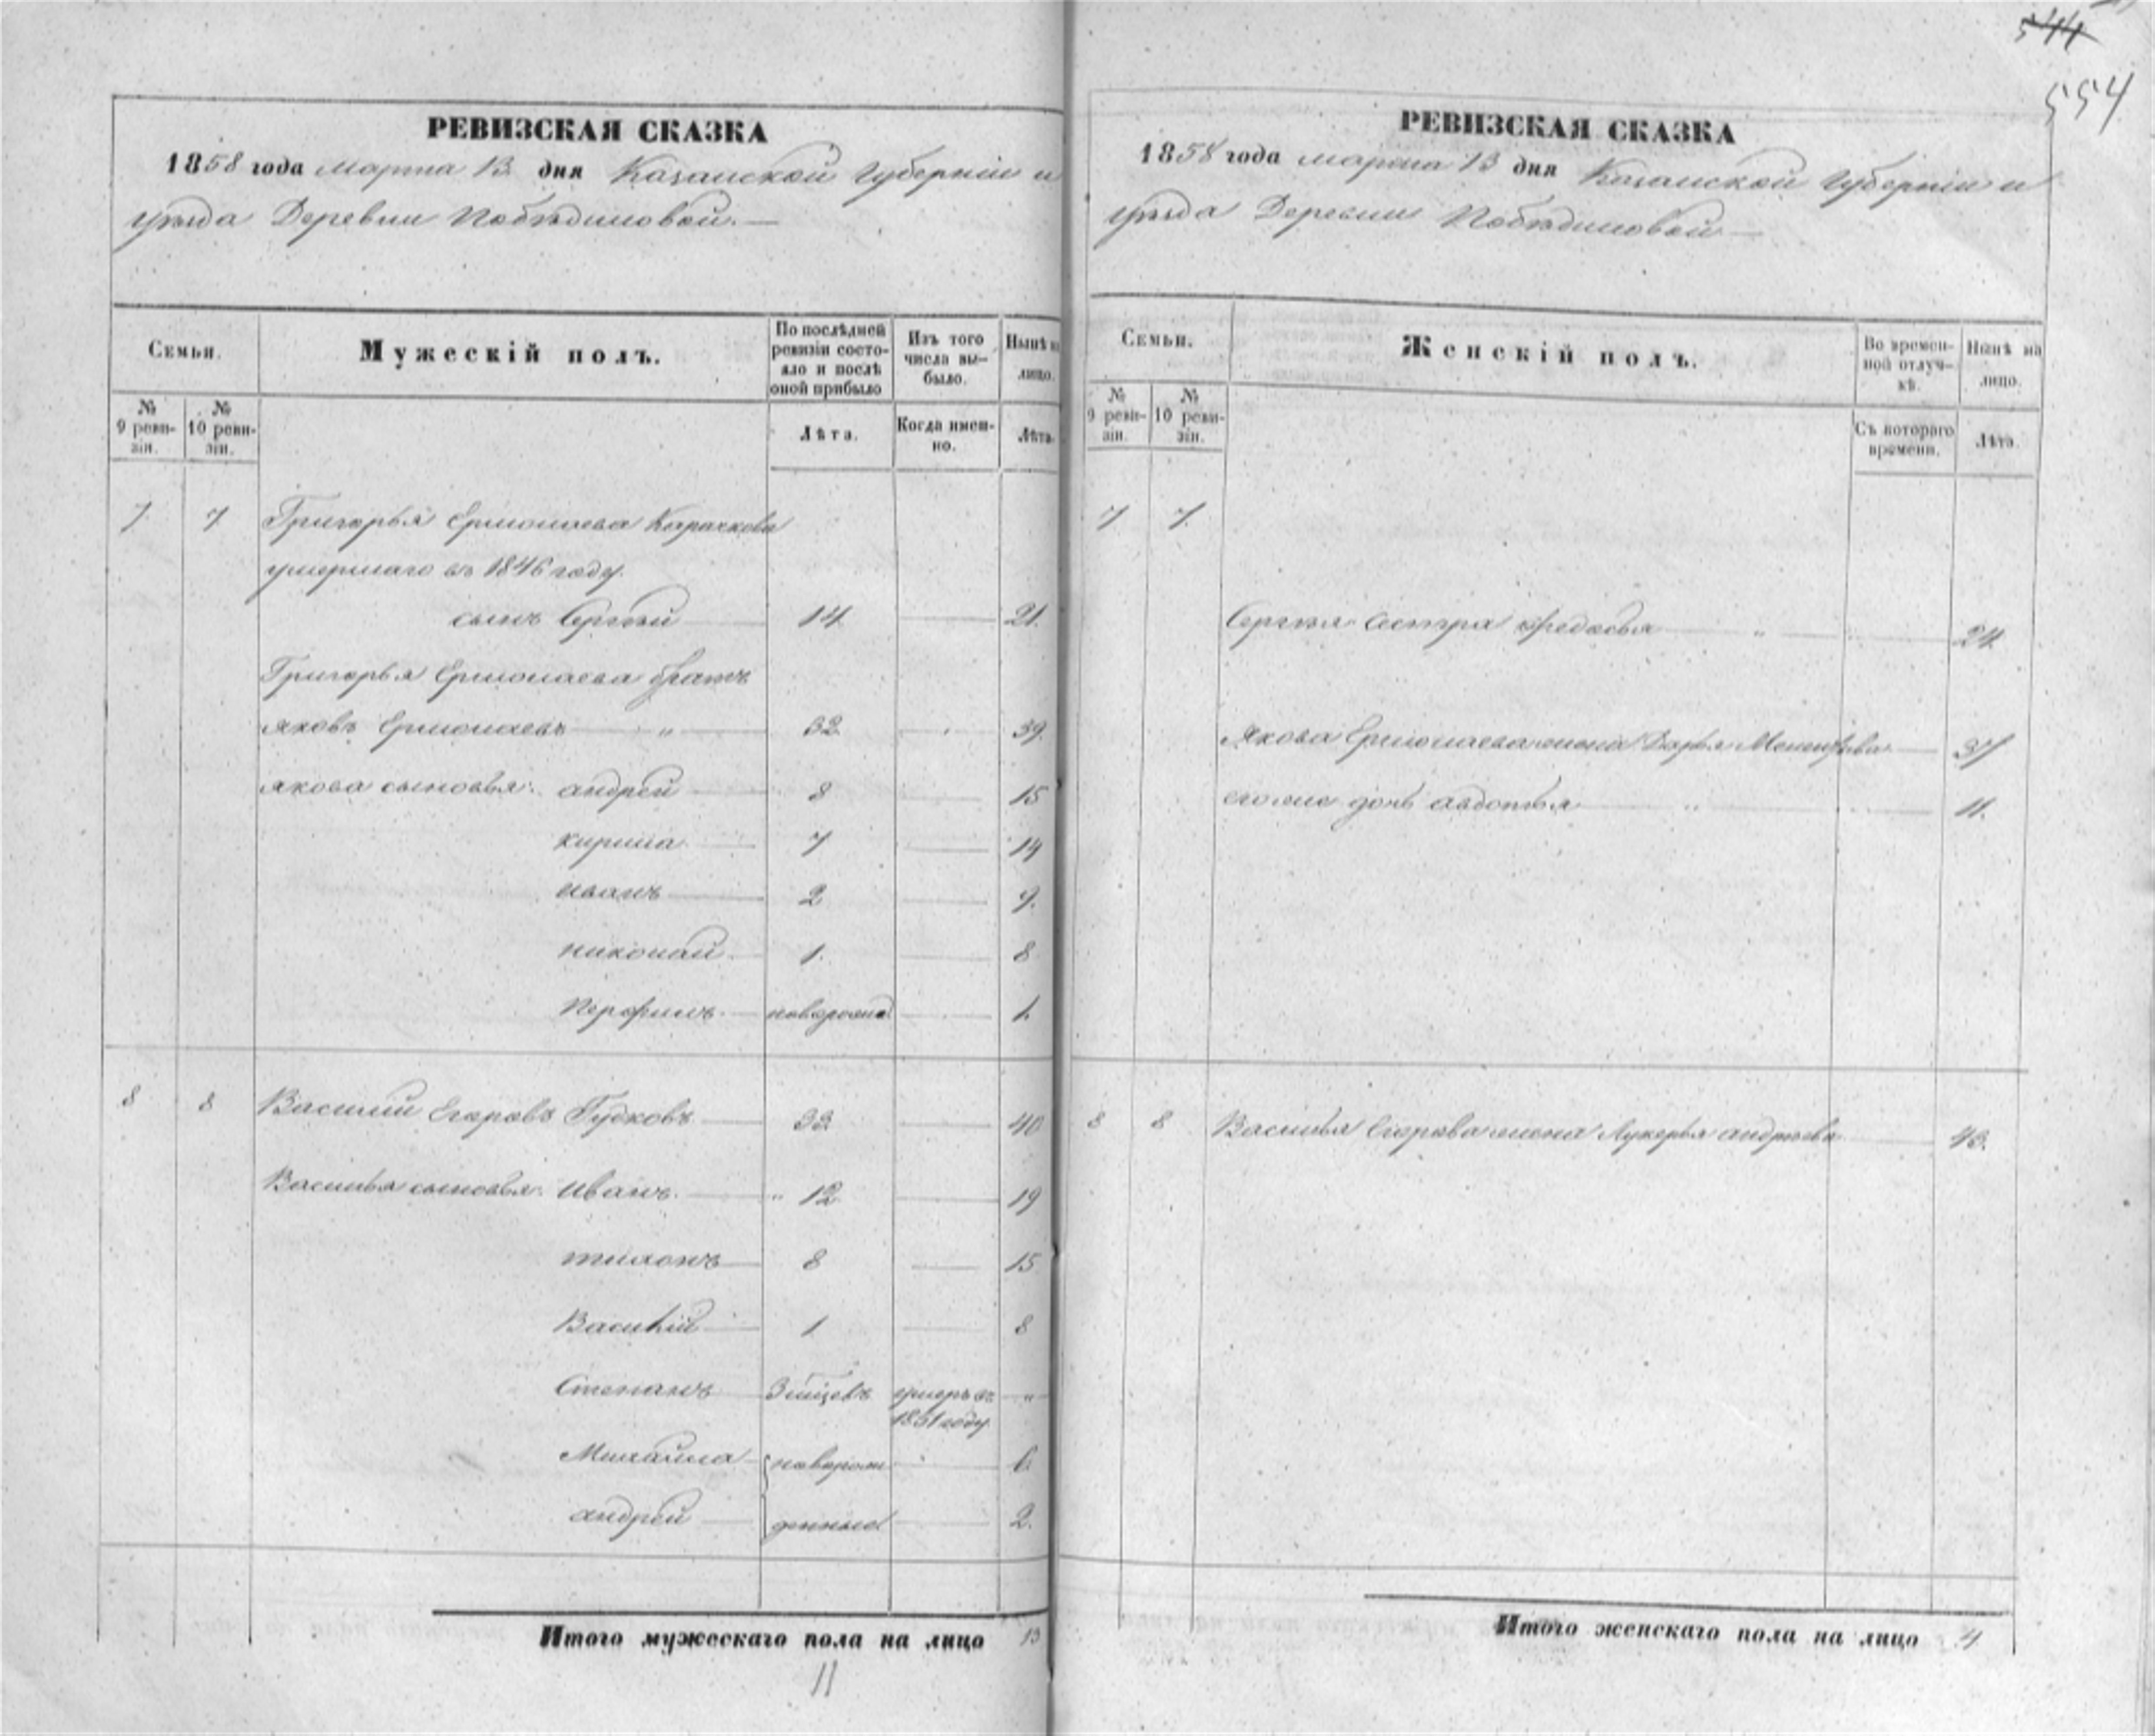 544
554
РЕВИЗСКАЯ СКАЗКА
1858 года марта 13 дня Казанской Губерніи и
уѣзда Деревни Побѣдиловой.—
Семьи.
Мужескій полъ.
По послѣдней ревизіи состояло и послѣ оной прибыло
Изъ того числа выбыло.
Нынѣ на лицо.
№ 9 ревизіи.
№ 10 ревизіи.
Лѣта.
Когда именно.
Лѣта.
7 7 Григорья Ермолаева Карачкова
умершаго въ 1846 году.
сынъ Сергѣй 14. 21.
Григорья Ермолаева братъ
яковъ Ермолаевъ " 32 39.
якова сыновья: андрей 8 15
кирила 7 14
иванъ 2 9.
николай 1. 8
Перфилъ новорожд 1.
8 8 Василий Егоровъ Гудковъ 33 40
Василья сыновья: иванъ " 12 19
тихонъ 8 15
Василій 1 8
Степанъ умеръ въ "
1851 году.
Михайла новорож 6.
андрей денные 2.
Итого мужескаго пола на лицо 13
11
РЕВИЗСКАЯ СКАЗКА
1858 года марта 13 дня Казанской Губерніи и
уѣзда Деревни Побѣдиловой—
Семьи.
Женскій полъ.
Во временной отлучкѣ.
Нынѣ на лицо.
№ 9 ревизіи.
№ 10 ревизіи.
Съ котораго времени.
Лѣта.
7 7.
Сергѣя сестра Федосья " 24.
Якова Ермолаева жена Дарья 37
его же дочь авдотья " 11.
8 8 Василья Егорова жена Лукерья андрѣева 43.
Итого женскаго пола на лицо 4